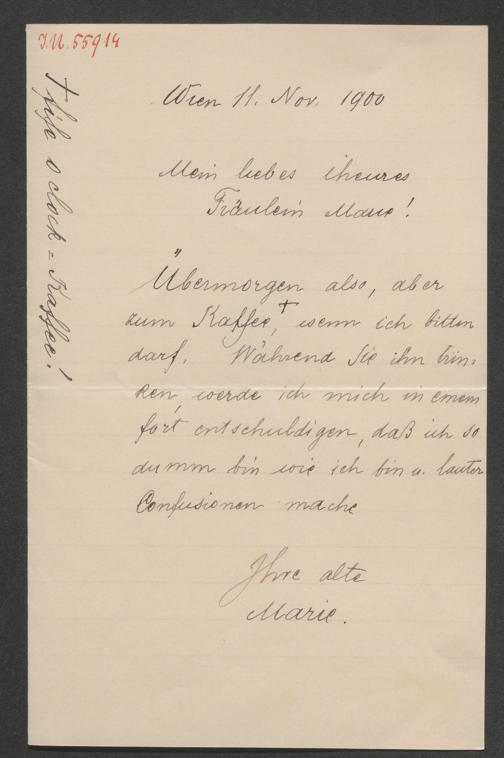 J.N. 55914
Wien 11. Nov. 1900
Mein liebes theures
Fräulein Marie!
Übermorgen also, aber
zum Kaffee,† wenn ich bitten
darf. Während Sie ihn trin-
ken, werde ich mich in einem
fort entschuldigen, daß ich so
dumm bin wie ich bin u. lauter
Confusionen mache
Ihre alte
Marie.
† five o clock = Kaffee!